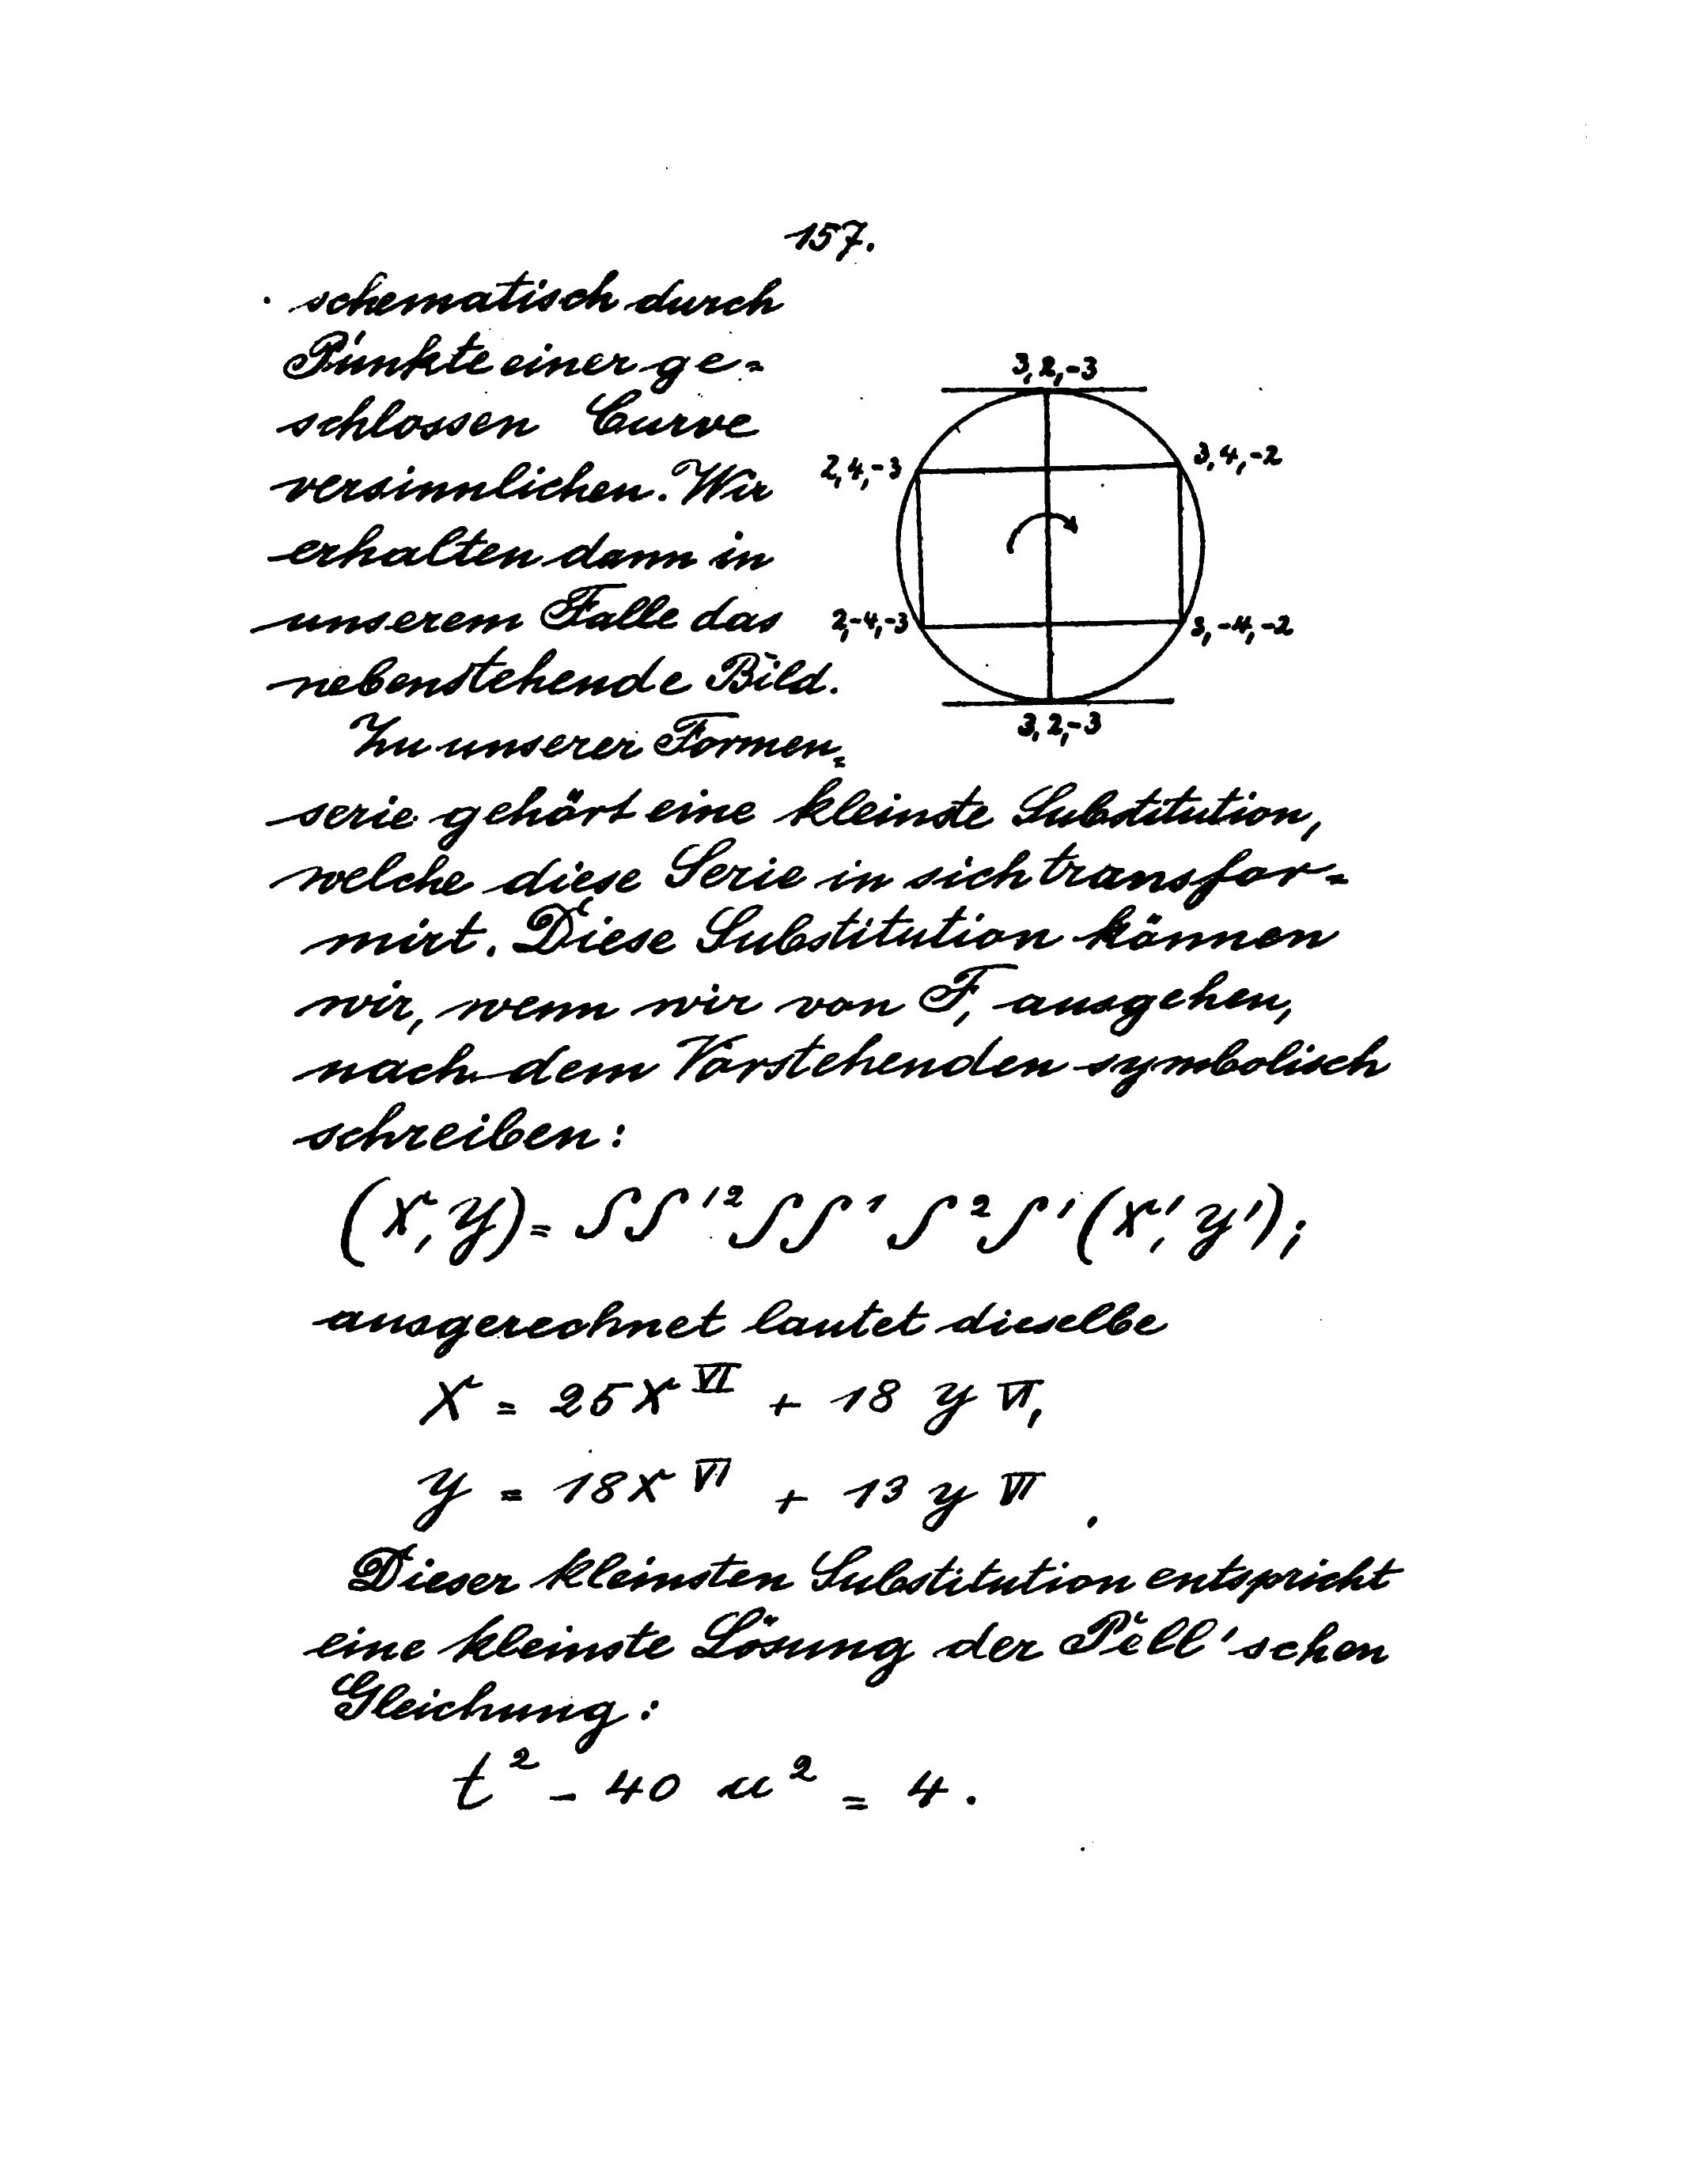 157.
schematisch durch
Punkte einer ge=
schlossen Curve
versinnlichen. Wir
erhalten dann in
unserem Falle das
nebenstehende Bild.
3,2,-3
2,4,-3
3,4,-2
2,-4,-3
3,-4,-2
3,2,-3
Zu unserer Formen=
serie gehört eine kleinste Substitution,
welche diese Serie in sich transfor=
mirt. Diese Substitution können
wir, wenn wir von F, ausgehen,
nach dem Vorstehenden symbolisch
schreiben:
(x, y) = SS'²SS'S²S'(x', y');
ausgerechnet lautet dieselbe
x = 25x^VI + 18 y^VI,
y = 18x^VI + 13 y^VI.
Dieser kleinsten Substitution entspricht
eine kleinste Lösung der Pell'schen
Gleichung:
t² - 40 u² = 4.